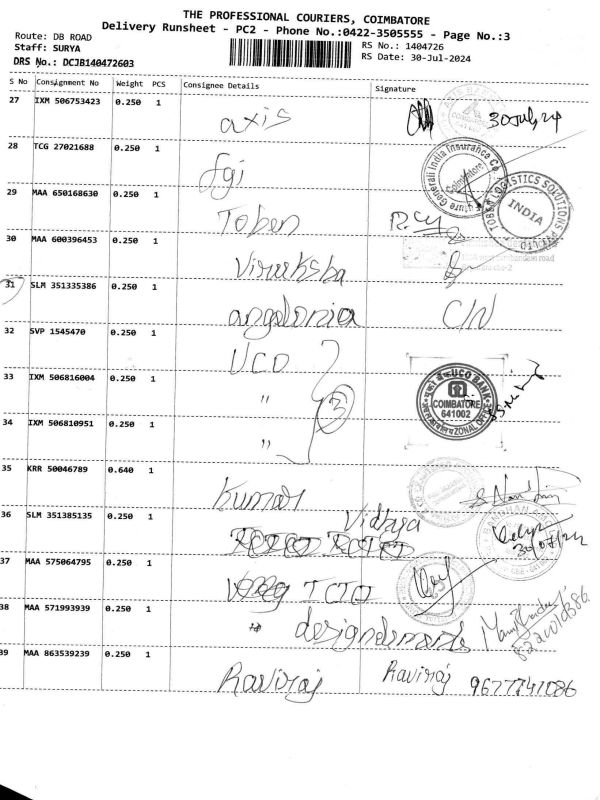 THE PROFESSIONAL COURIERS, COIMBATORE
Delivery Runsheet - PC2 - Phone No.:0422-3505555 - Page No.:3
Route: DB ROAD
RS No.: 1404726
Staff: SURYA
RS Date: 30-Jul-2024
DRS No.: DCJB140472603
S No Consignment No Weight PCS Consignee Details Signature
27 IXM 506753423 0.250 1 axis 30 July 24
28 TCG 27021688 0.250 1 fgi
Future Generali India Insurance Co
Coimbatore
29 MAA 650168630 0.250 1 Toben
TOBER LOGISTICS SOLUTIONS
INDIA
30 MAA 600396453 0.250 1 Viruksha
31 SLM 351335386 0.250 1 angelonia C/N
32 SVP 1545470 0.250 1 UCO
33 IXM 506816004 0.250 1 " 3
UCO BANK
COIMBATORE
641002
ZONAL OFFICE
34 IXM 506810951 0.250 1 "
35 KRR 50046789 0.640 1 Kumar
36 SLM 351385135 0.250 1 Vidhya
30/07/24
37 MAA 575064795 0.250 1 TCTO
38 MAA 571993939 0.250 1
39 MAA 863539239 0.250 1 Raviraj Raviraj 9677741086